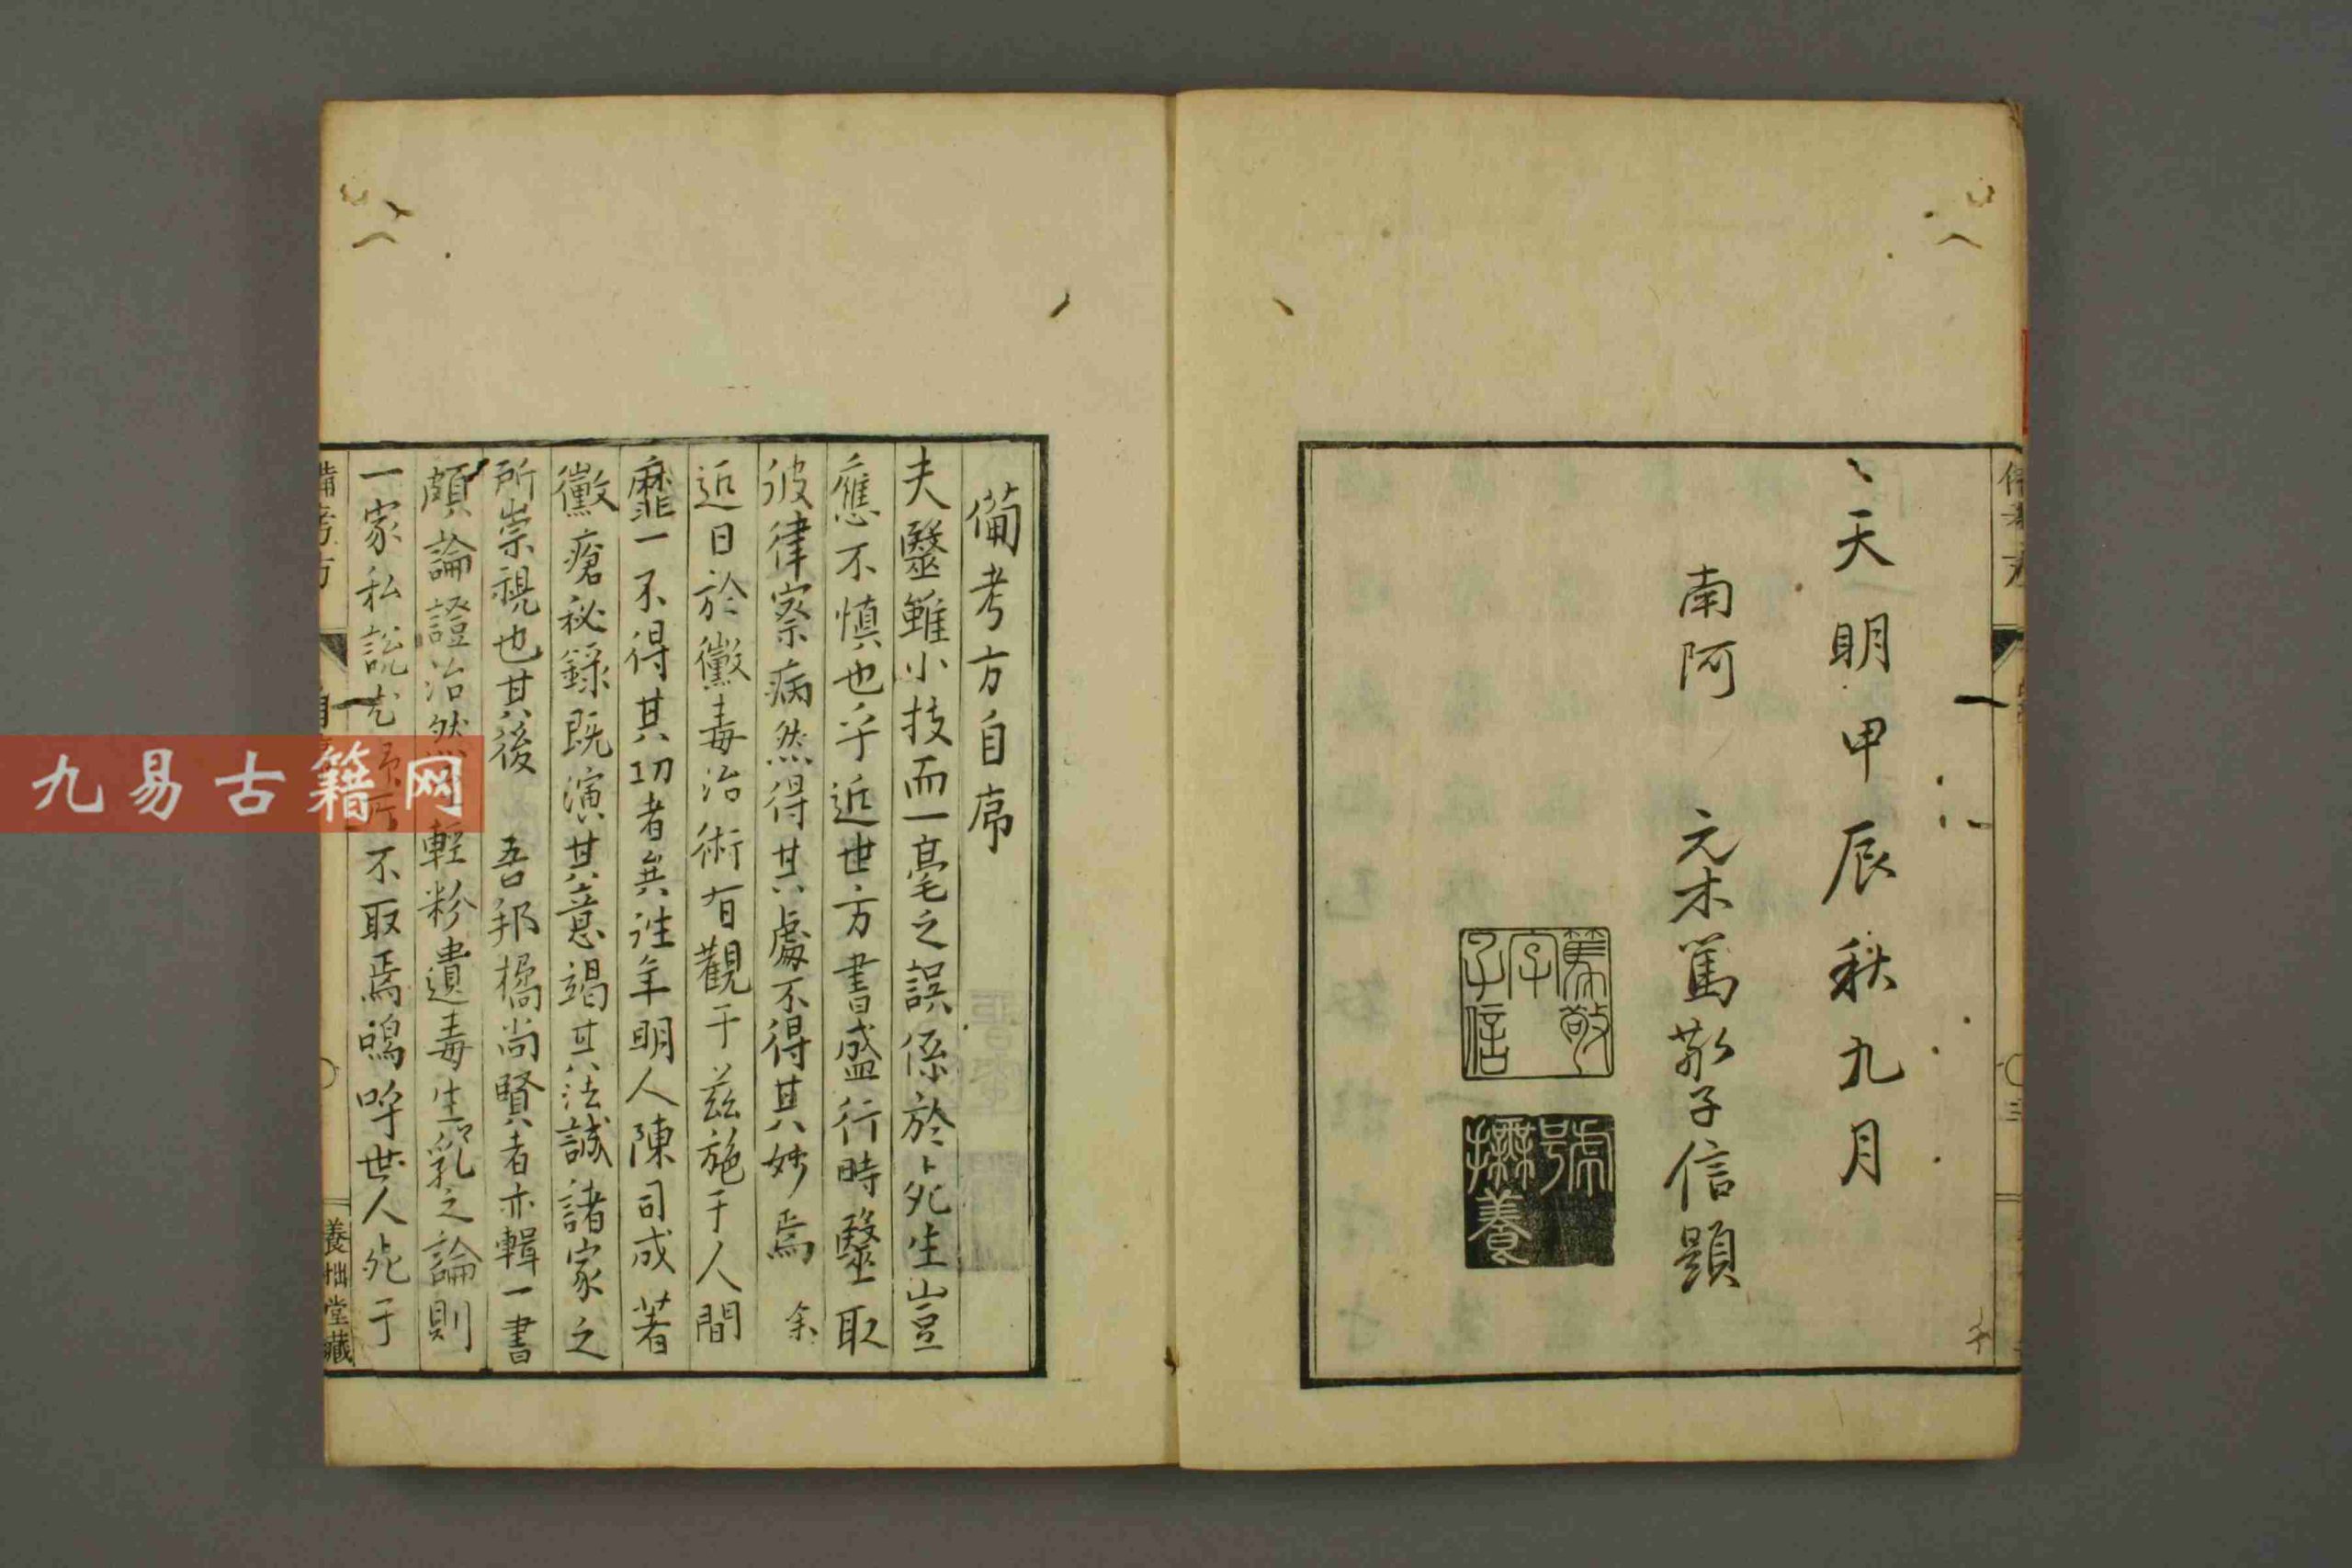 天明甲辰秋九月
南阿 元木篤敬子信題
篤敬字子信
號撫養
備考方自序
夫醫雖小技而一毫之誤係於死生豈
應不慎也乎近世方書盛行時醫取
彼律察病然得其處不得其妙焉 余
近日於黴毒治術有觀于茲施于人間
靡一不得其功者矣往年明人陳司成著
黴瘡秘錄既演其意竭其法誠諸家之
所崇視也其後 吾邦橘尚賢者亦輯一書
頗論證治然 輕粉遺毒生乳之論則
一家私說 不取焉嗚呼世人死于
備考方
養拙堂藏
九易古籍网